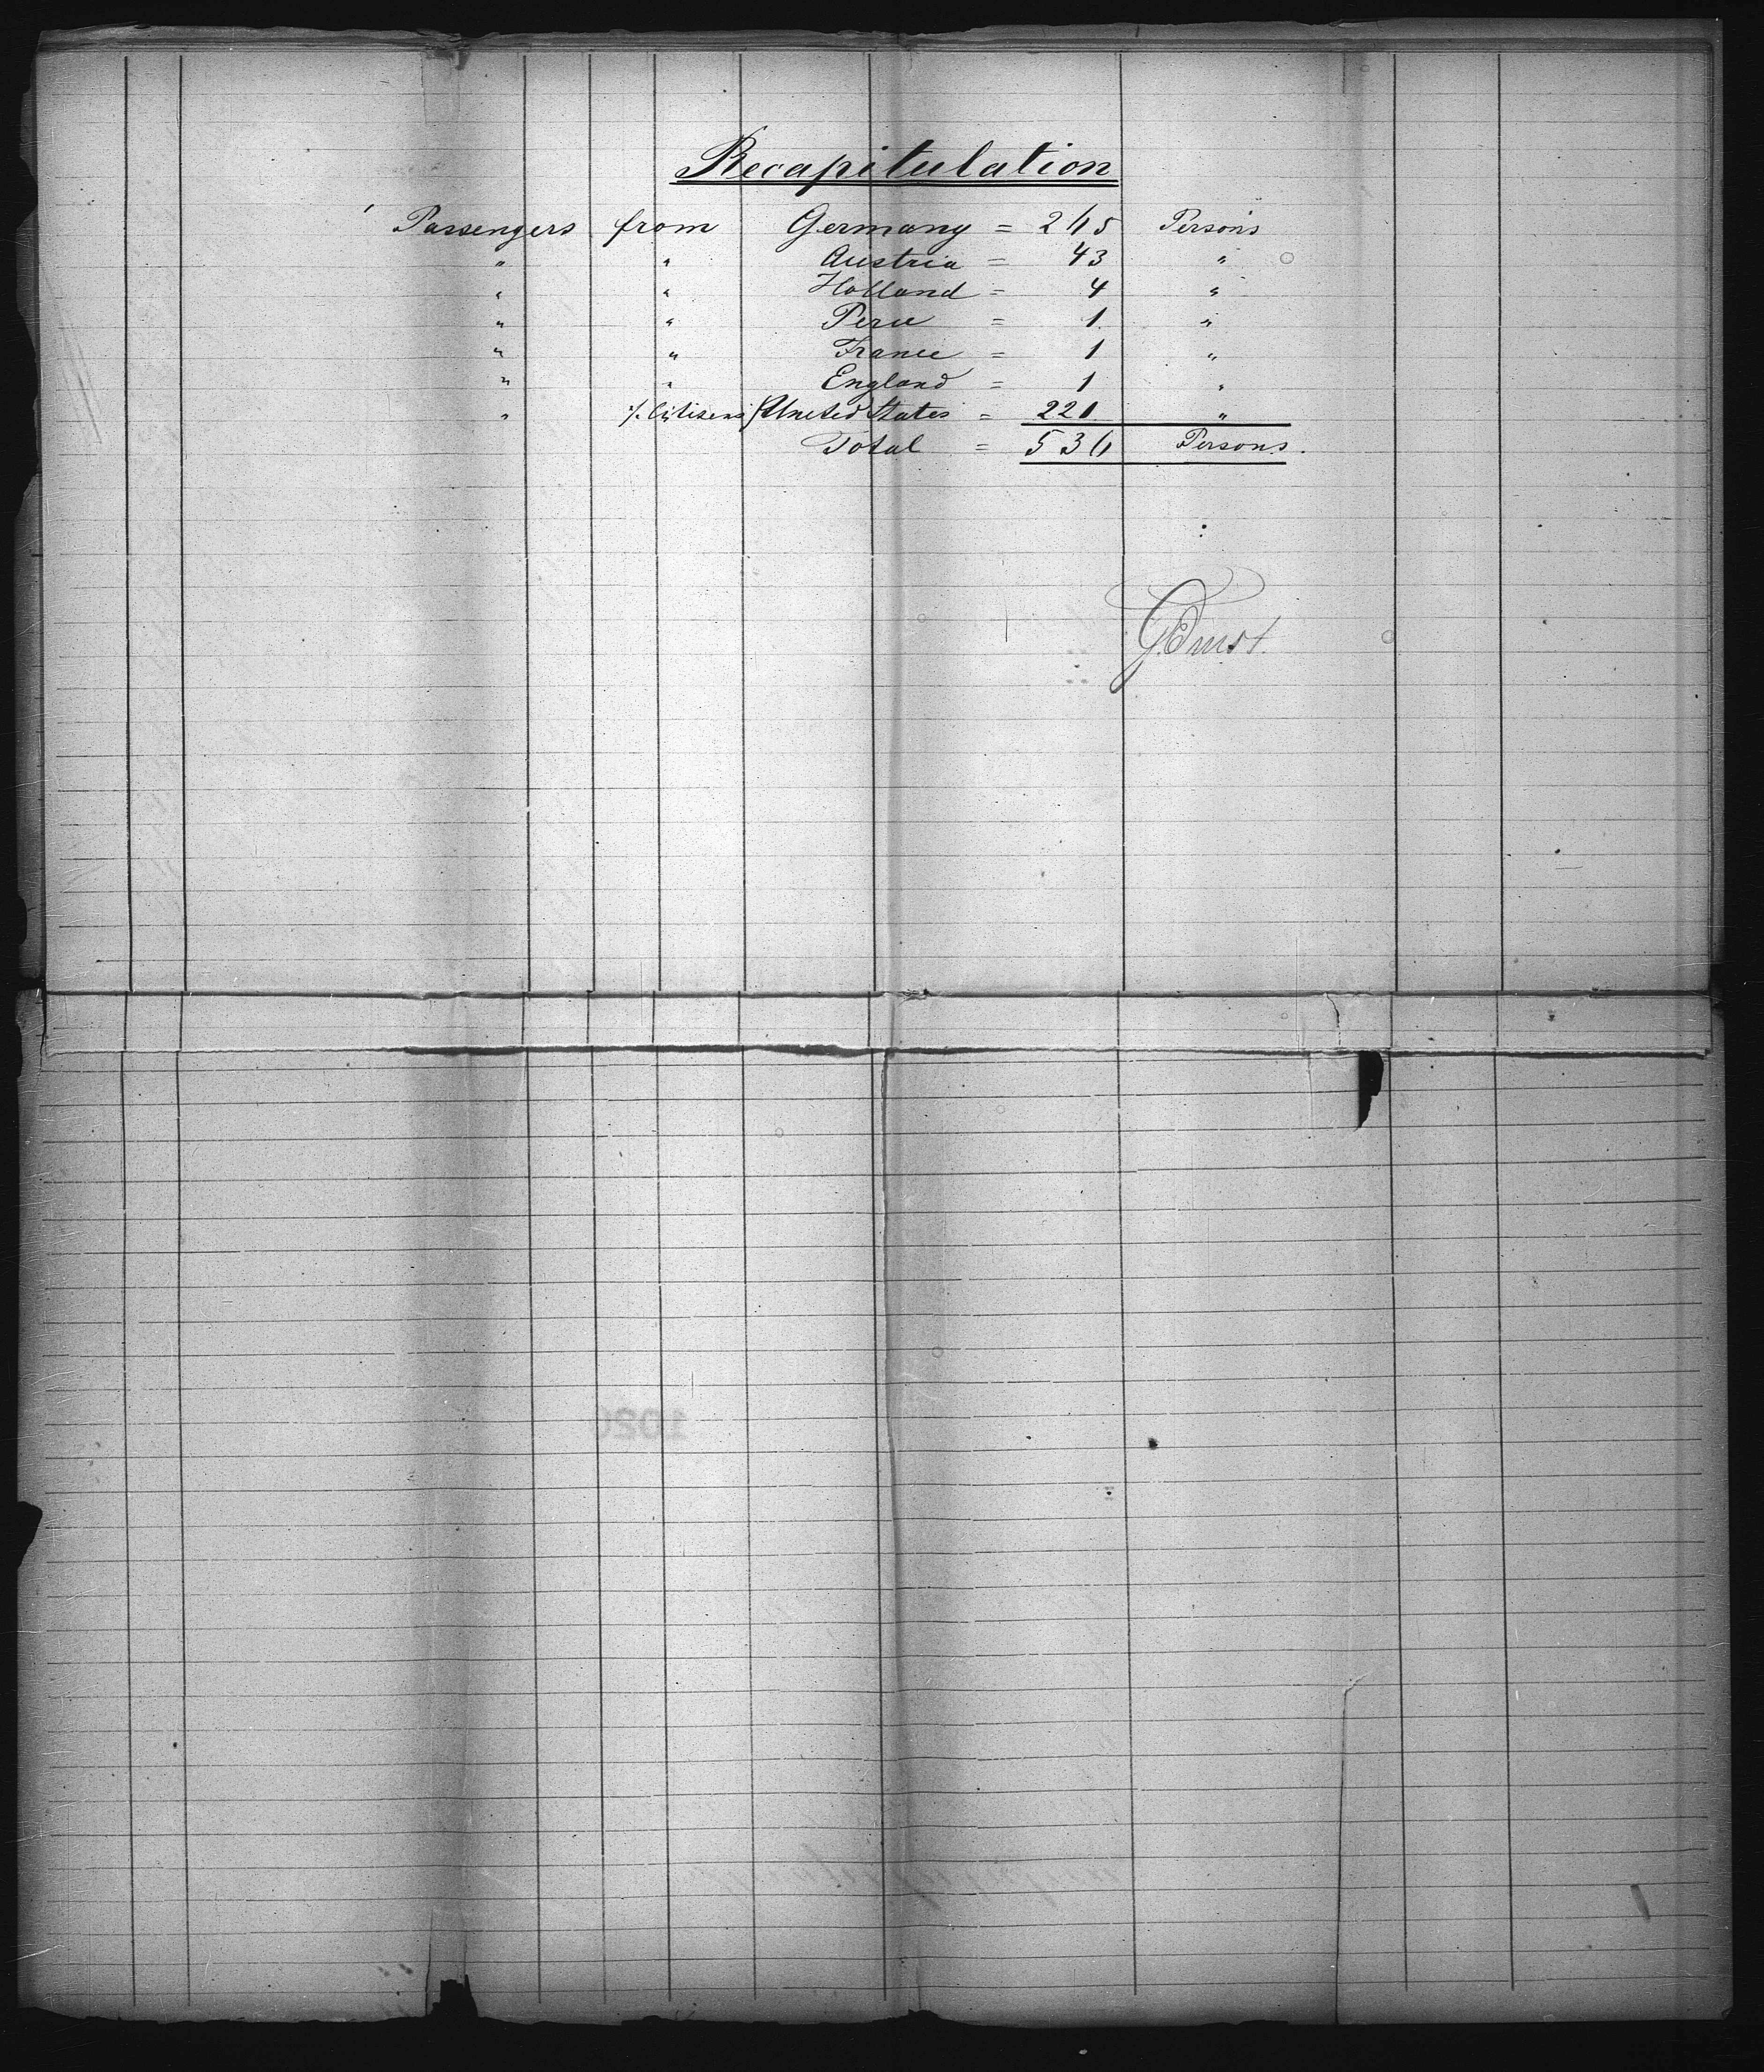 Recapitulation
Passengers from Germany = 265 Persons
" " Austria = 43 "
" " Holland = 4 "
" " Peru = 1 "
" " France = 1 "
" " England = 1 "
" /. Citizens / United States = 221 "
Total = 536 Persons.
G. Ernst.